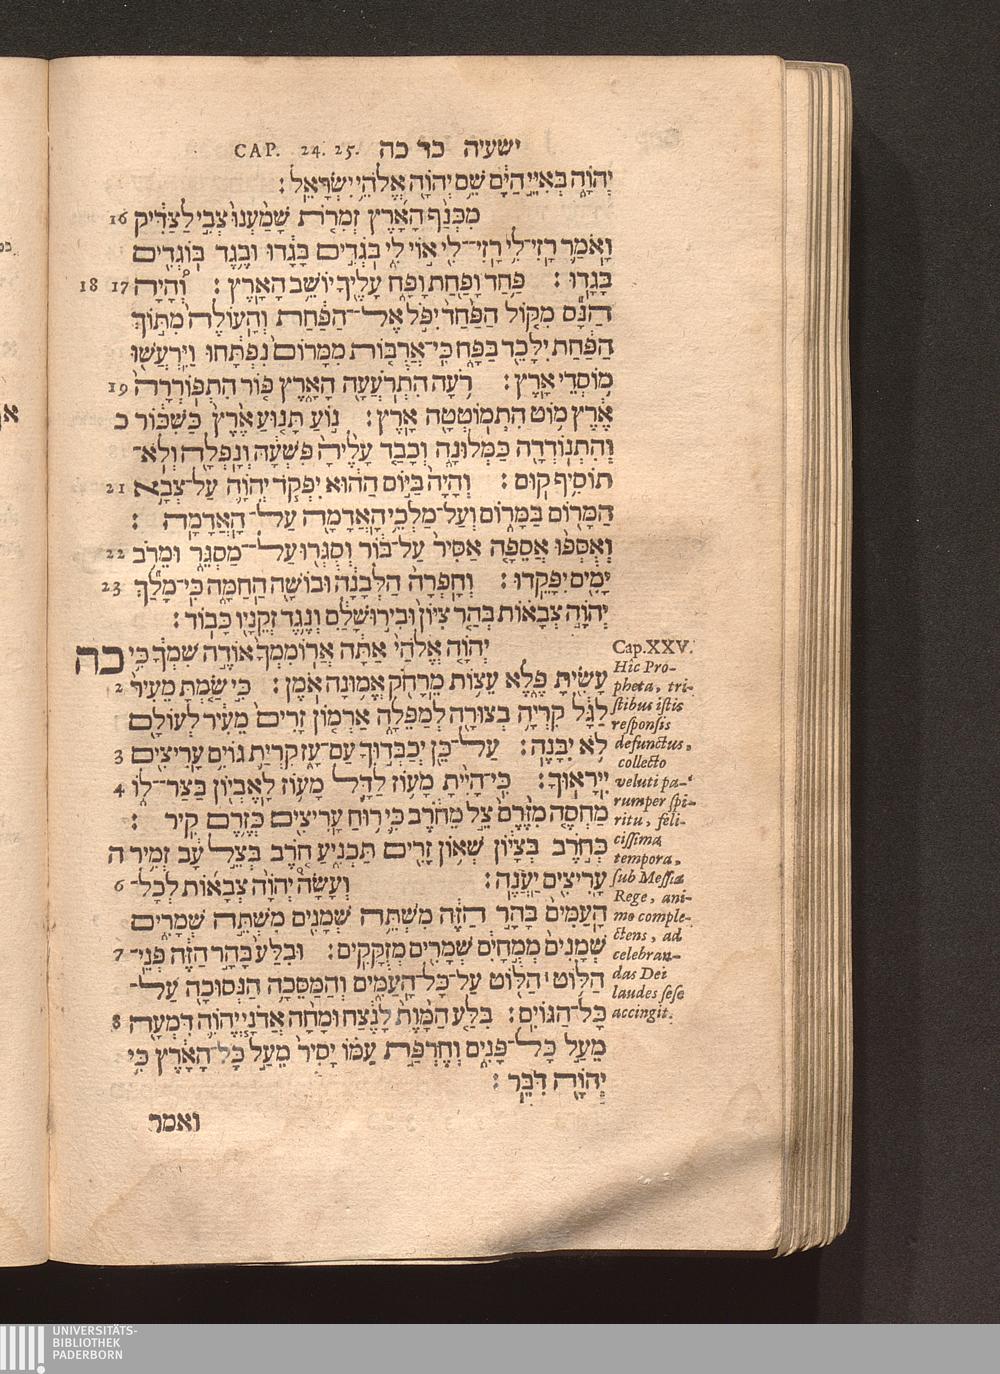 CAP. 24. 25. ישעיה כד כה
יְהֹוָה בְּאִיֵּי הַיָּם שֵׁם יְהֹוָה אֱלֹהֵי יִשְׂרָאֵל׃
מִכְּנַף הָאָרֶץ זְמִרֹת שָׁמַעְנוּ צְבִי לַצַּדִּיק 16
וָאֹמַר רָזִי־לִי רָזִי־לִי אוֹי לִי בֹּגְדִים בָּגָדוּ וּבֶגֶד בּוֹגְדִים
בָּגָדוּ׃ פַּחַד וָפַחַת וָפָח עָלֶיךָ יוֹשֵׁב הָאָרֶץ׃ וְהָיָה 17 18
הַנָּס מִקּוֹל הַפַּחַד יִפֹּל אֶל־הַפַּחַת וְהָעוֹלֶה מִתּוֹךְ
הַפַּחַת יִלָּכֵד בַּפָּח כִּי־אֲרֻבּוֹת מִמָּרוֹם נִפְתָּחוּ וַיִּרְעֲשׁוּ
מוֹסְדֵי אָרֶץ׃ רֹעָה הִתְרֹעֲעָה הָאָרֶץ פּוֹר הִתְפּוֹרְרָה 19
אֶרֶץ מוֹט הִתְמוֹטְטָה אָרֶץ׃ נוֹעַ תָּנוּעַ אֶרֶץ כַּשִּׁכּוֹר כ
וְהִתְנוֹדְדָה כַּמְּלוּנָה וְכָבַד עָלֶיהָ פִּשְׁעָהּ וְנָפְלָה וְלֹא־
תוֹסִיף קוּם׃ וְהָיָה בַּיּוֹם הַהוּא יִפְקֹד יְהֹוָה עַל־צְבָא 21
הַמָּרוֹם בַּמָּרוֹם וְעַל־מַלְכֵי הָאֲדָמָה עַל־הָאֲדָמָה׃
וְאֻסְּפוּ אֲסֵפָה אַסִּיר עַל־בּוֹר וְסֻגְּרוּ עַל־מַסְגֵּר וּמֵרֹב 22
יָמִים יִפָּקֵדוּ׃ וְחָפְרָה הַלְּבָנָה וּבוֹשָׁה הַחַמָּה כִּי־מָלַךְ 23
יְהֹוָה צְבָאוֹת בְּהַר צִיּוֹן וּבִירוּשָׁלִַם וְנֶגֶד זְקֵנָיו כָּבוֹד׃
יְהֹוָה אֱלֹהַי אַתָּה אֲרוֹמִמְךָ אוֹדֶה שִׁמְךָ כִּי כה
עָשִׂיתָ פֶּלֶא עֵצוֹת מֵרָחֹק אֱמוּנָה אֹמֶן׃ כִּי שַׂמְתָּ מֵעִיר 2
לַגָּל קִרְיָה בְצוּרָה לְמַפֵּלָה אַרְמוֹן זָרִים מֵעִיר לְעוֹלָם
לֹא יִבָּנֶה׃ עַל־כֵּן יְכַבְּדוּךָ עַם־עָז קִרְיַת גּוֹיִם עָרִיצִים 3
יִירָאוּךָ׃ כִּי־הָיִיתָ מָעוֹז לַדָּל מָעוֹז לָאֶבְיוֹן בַּצַּר־לוֹ 4
מַחְסֶה מִזֶּרֶם צֵל מֵחֹרֶב כִּי רוּחַ עָרִיצִים כְּזֶרֶם קִיר׃
כְּחֹרֶב בְּצָיוֹן שְׁאוֹן זָרִים תַּכְנִיעַ חֹרֶב בְּצֵל עָב זְמִיר ה
עָרִיצִים יַעֲנֶה׃ וְעָשָׂה יְהֹוָה צְבָאוֹת לְכָל־ 6
הָעַמִּים בָּהָר הַזֶּה מִשְׁתֵּה שְׁמָנִים מִשְׁתֵּה שְׁמָרִים
שְׁמָנִים מְמֻחָיִם שְׁמָרִים מְזֻקָּקִים׃ וּבִלַּע בָּהָר הַזֶּה פְּנֵי־ 7
הַלּוֹט ׀ הַלּוֹט עַל־כָּל־הָעַמִּים וְהַמַּסֵּכָה הַנְּסוּכָה עַל־
כָּל־הַגּוֹיִם׃ בִּלַּע הַמָּוֶת לָנֶצַח וּמָחָה אֲדֹנָי יֱהֹוִה דִּמְעָה 8
מֵעַל כָּל־פָּנִים וְחֶרְפַּת עַמּוֹ יָסִיר מֵעַל כָּל־הָאָרֶץ כִּי
יְהֹוָה דִּבֵּר׃
ואמר
Cap. XXV.
Hic Pro-
pheta, tri-
ſtibus iſtis
reſponſis
defunctus,
collecto
veluti pa-
rumper ſpi-
ritu, feli-
ciſſima
tempora,
ſub Meſſia
Rege, ani-
mo comple-
ctens, ad
celebran-
das Dei
laudes ſeſe
accingit.
UNIVERSITÄTS-
BIBLIOTHEK
PADERBORN